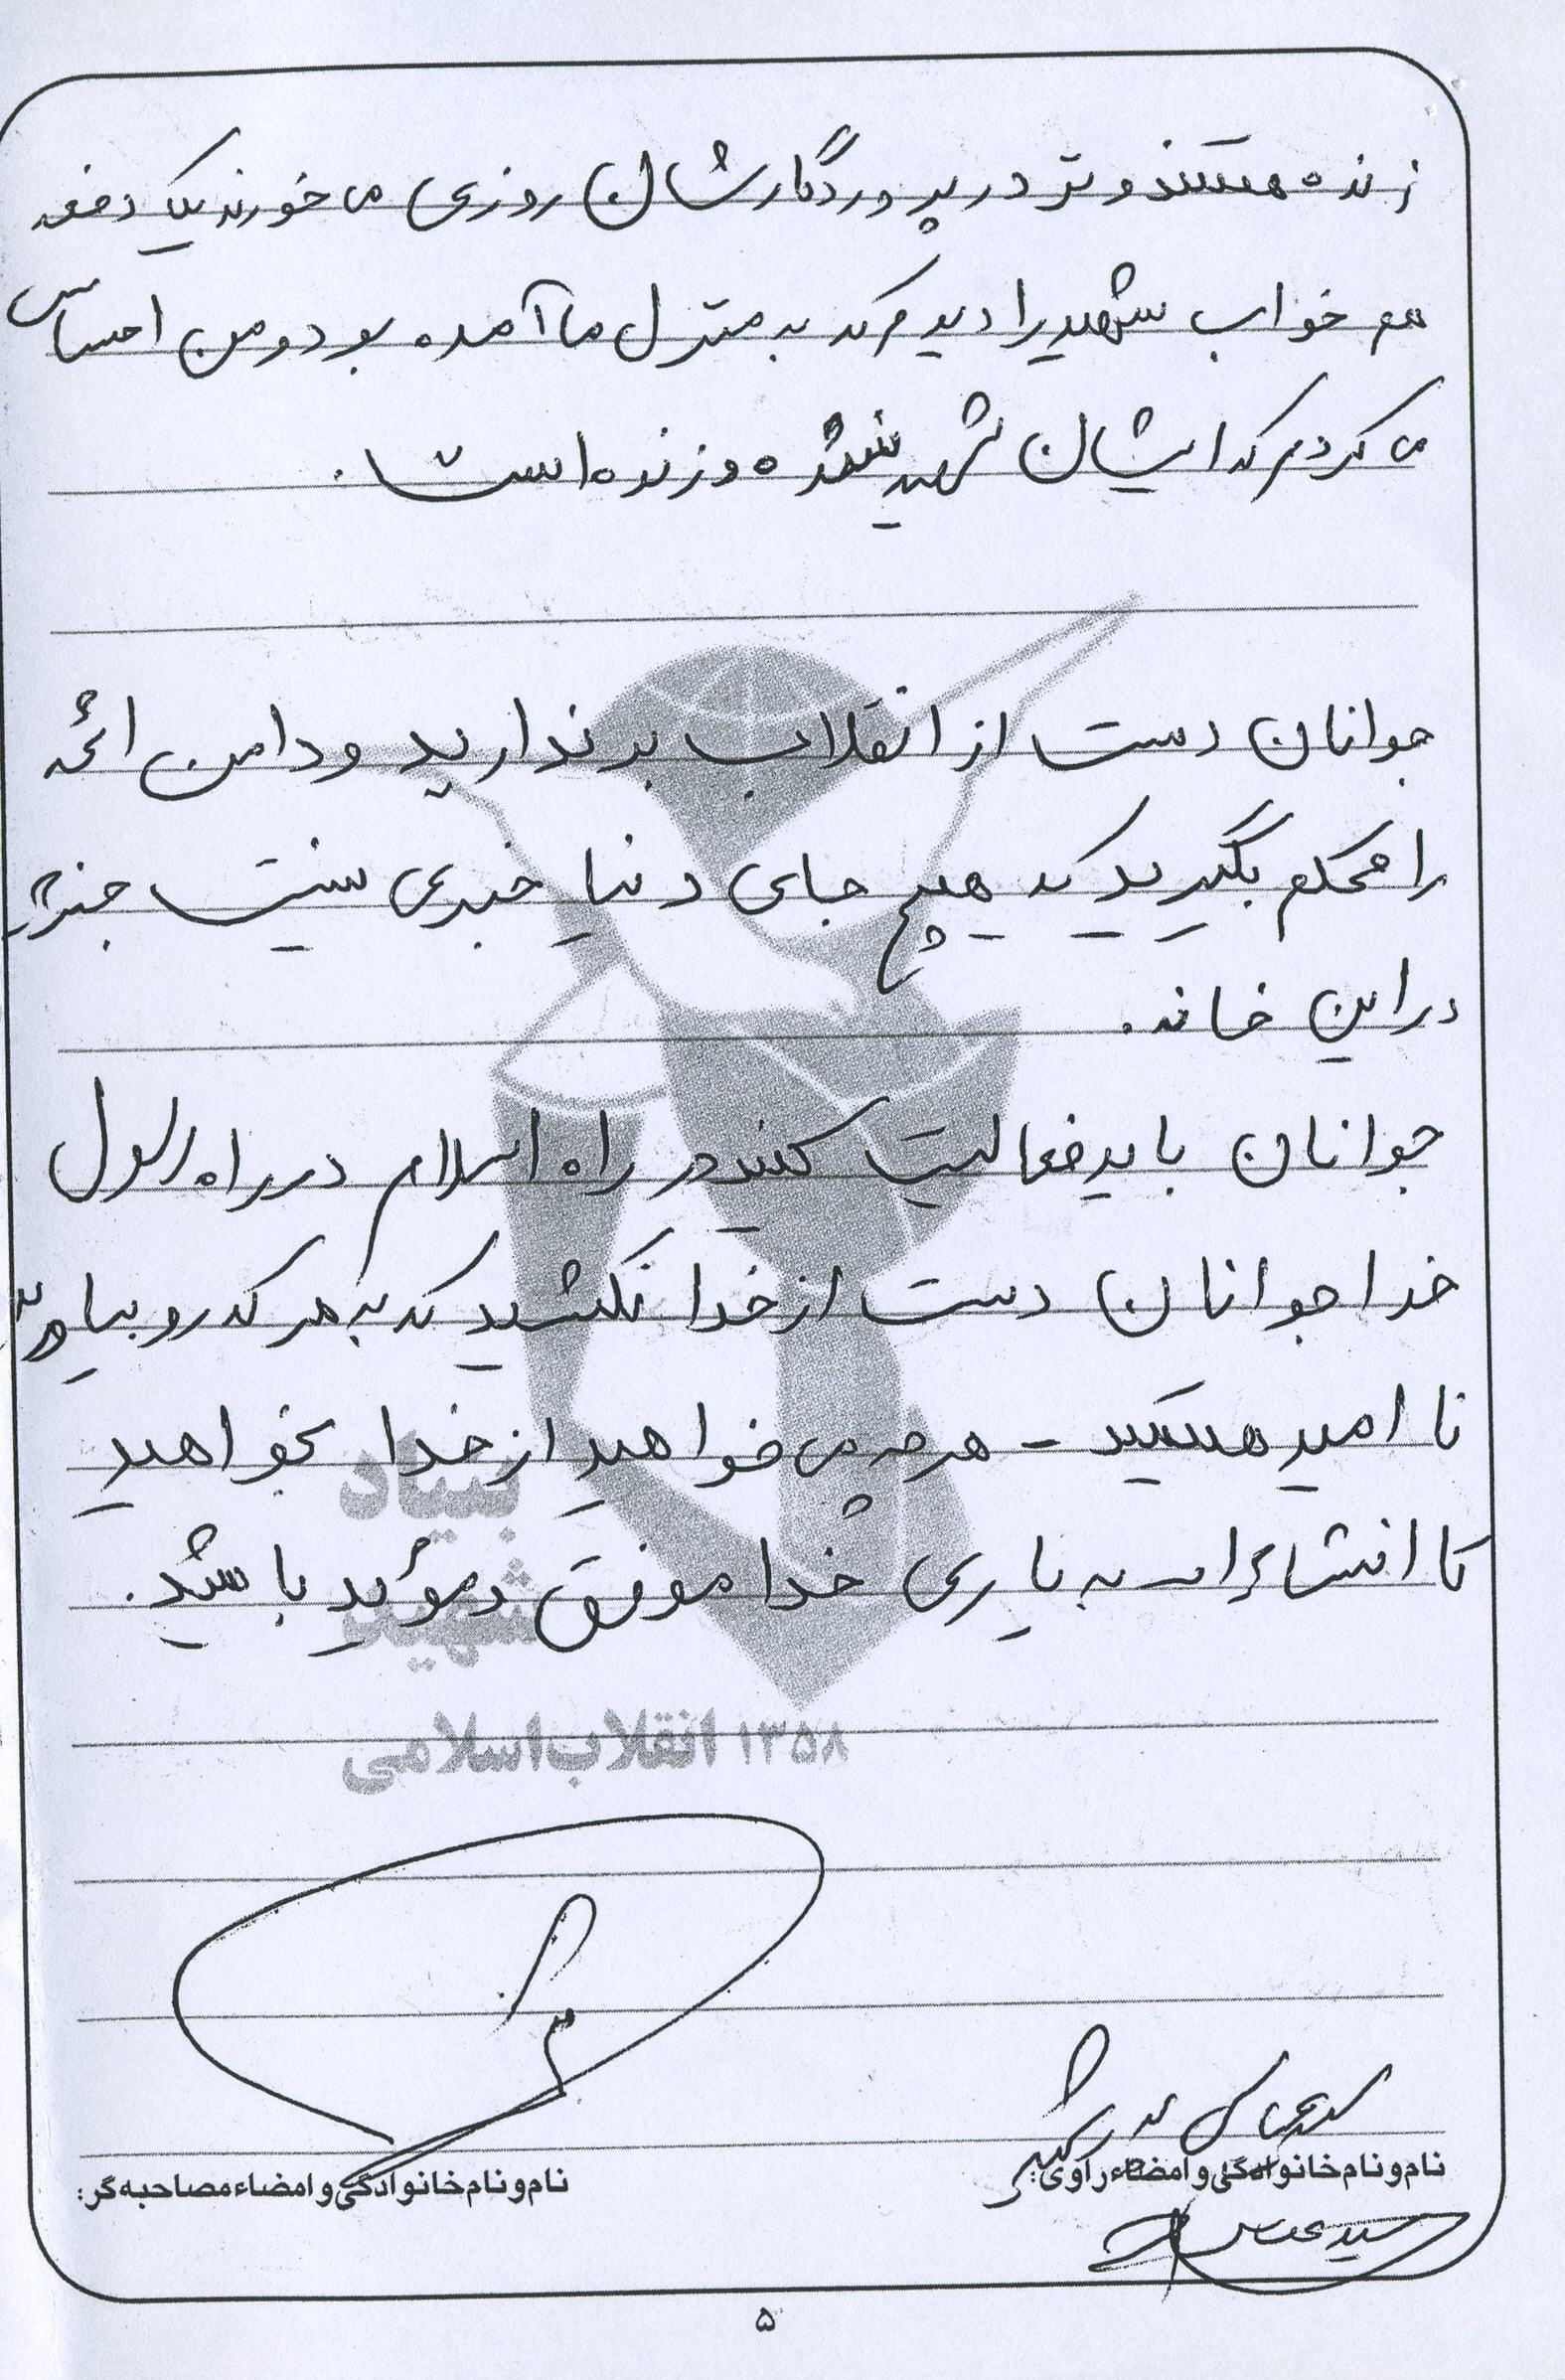 زنده هستند و نزد پروردگارشان روزی می خورند یک دفعه
هم خواب شهید را دیدم که به منزل ما آمده بود و من احساس
می کردم که ایشان شهید نشده و زنده است.
جوانان دست از انقلاب برندارید و دامن ائمه
را محکم بگیرید که هیچ جای دنیا خبری نیست جز
در این خانه.
جوانان باید فعالیت کنند در راه اسلام در راه رسول
خدا جوانان دست از خدا نکشید که به هر که رو بیاورید
نا امید هستید - هر چه می خواهید از خدا بخواهید
تا انشاء الله به یاری خدا موفق و مؤید باشید.
بنیاد
شهید
۱۳۵۸ انقلاب اسلامی
سید عباس
نام و نام خانوادگی و امضاء راوی:
نام و نام خانوادگی و امضاء مصاحبه گر:
سید عباس
۵